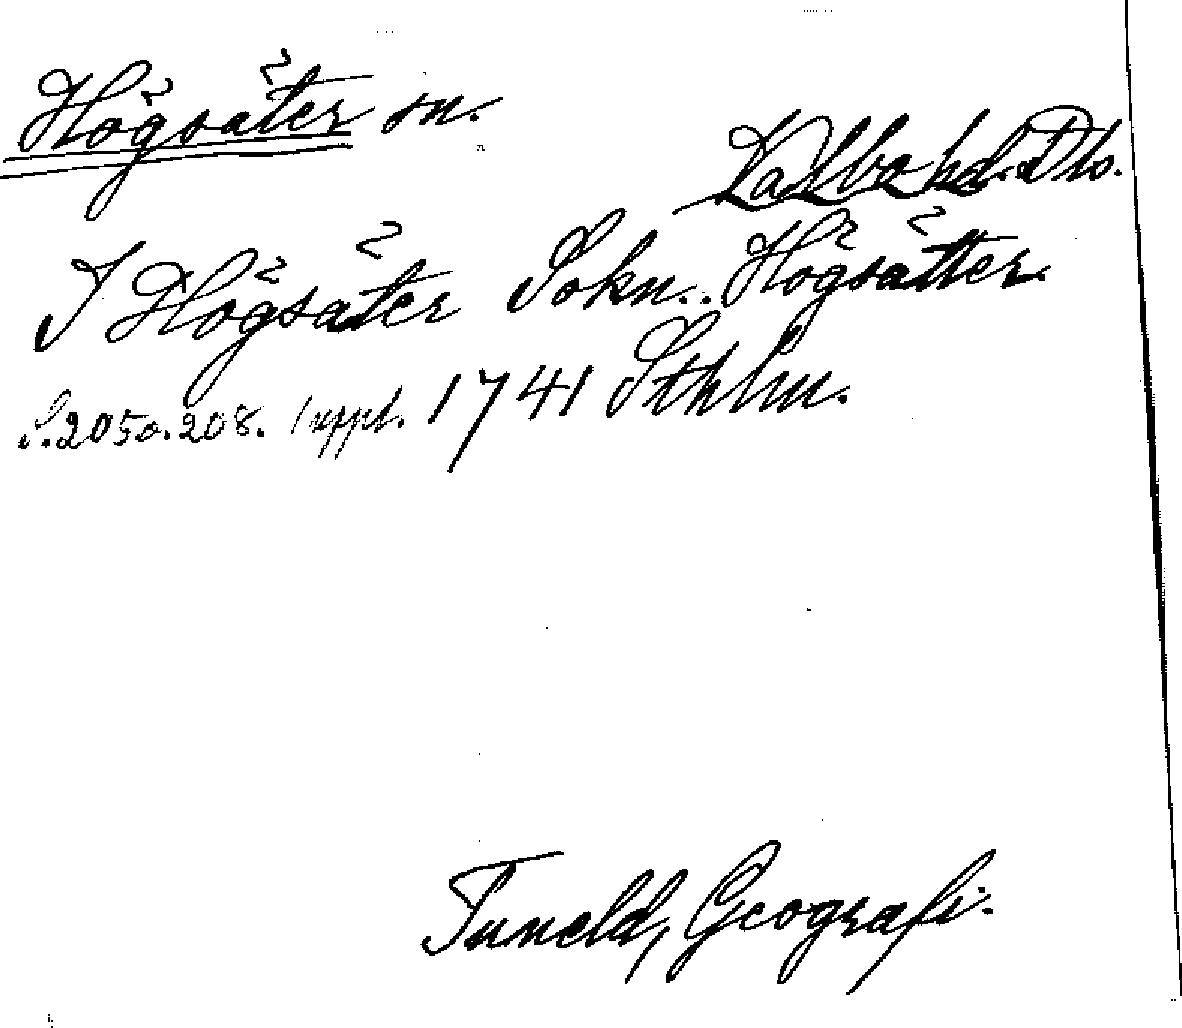 Högsäter sn.
Valbo hd. Dls.
I Högsäter Sokn.. Högsätter.
S. 205 o. 208. suppl. 1741 Sthlm.
Tuneld, Geografi.